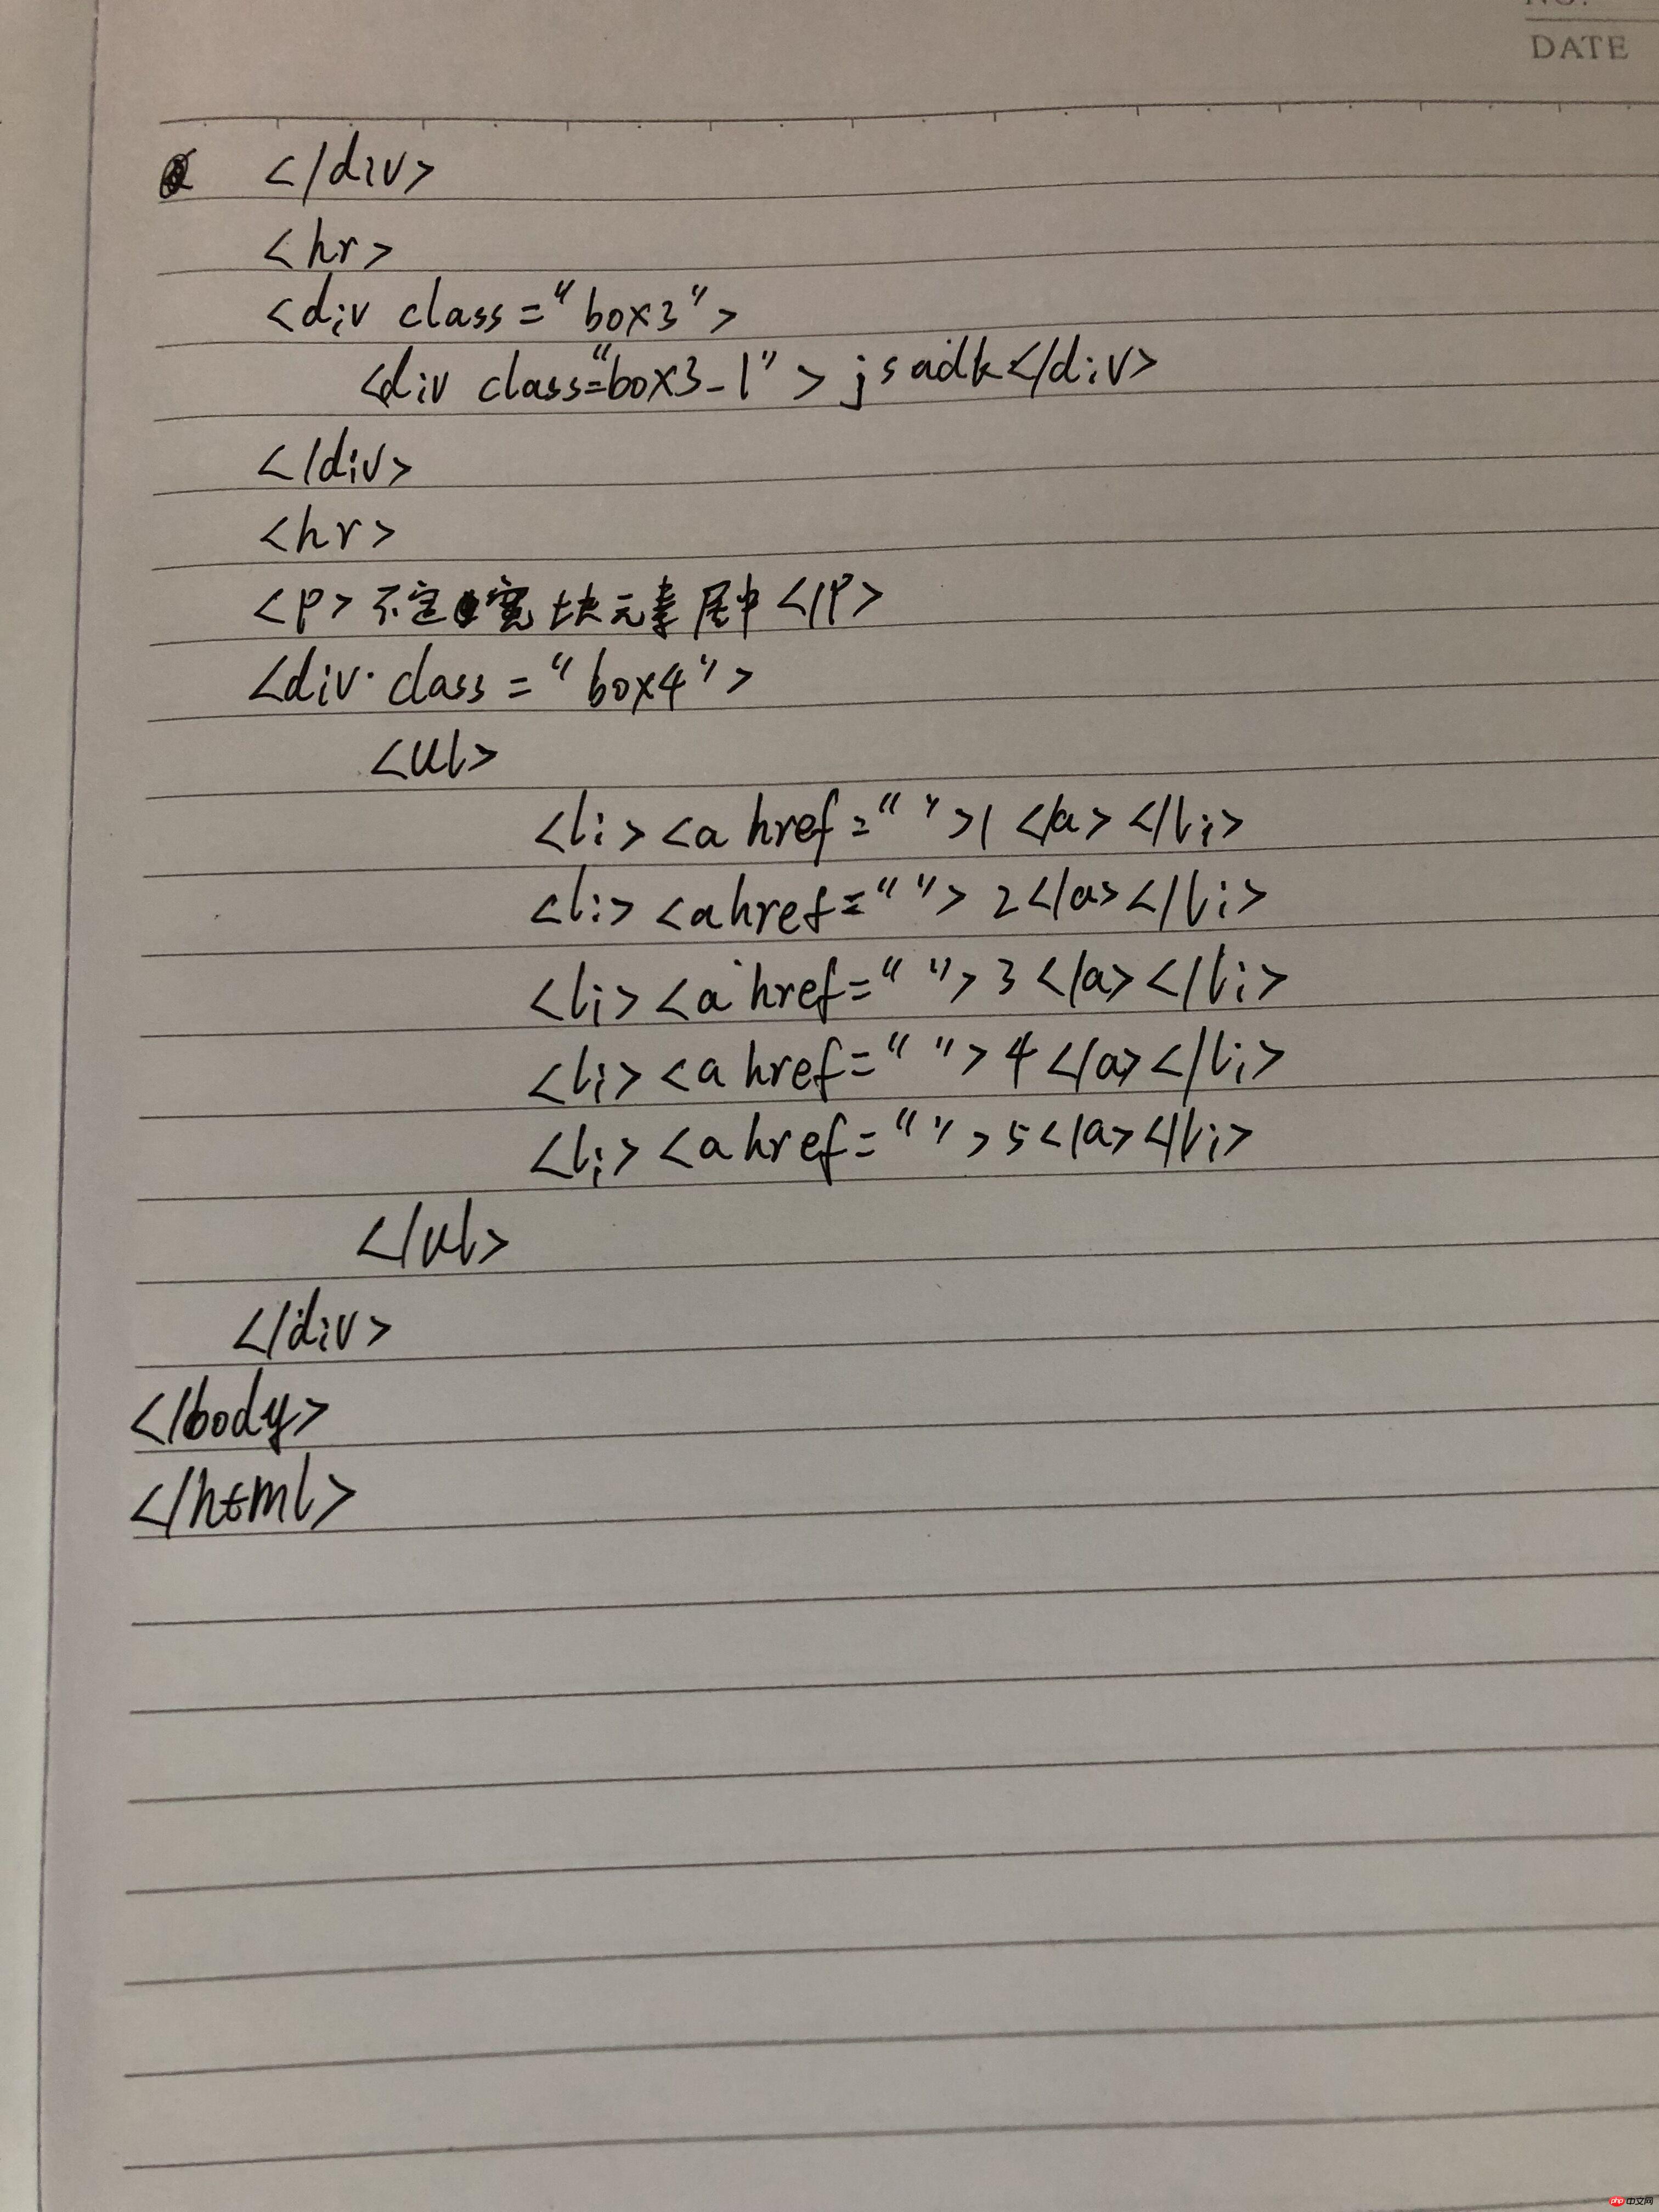 NO.
DATE
</div>
<hr>
<div class="box3">
<div class="box3-1">jsadk</div>
</div>
<hr>
<p>不定宽块元素居中</p>
<div class="box4">
<ul>
<li><a href="">1</a></li>
<li><a href="">2</a></li>
<li><a href="">3</a></li>
<li><a href="">4</a></li>
<li><a href="">5</a></li>
</ul>
</div>
</body>
</html>
php 中文网